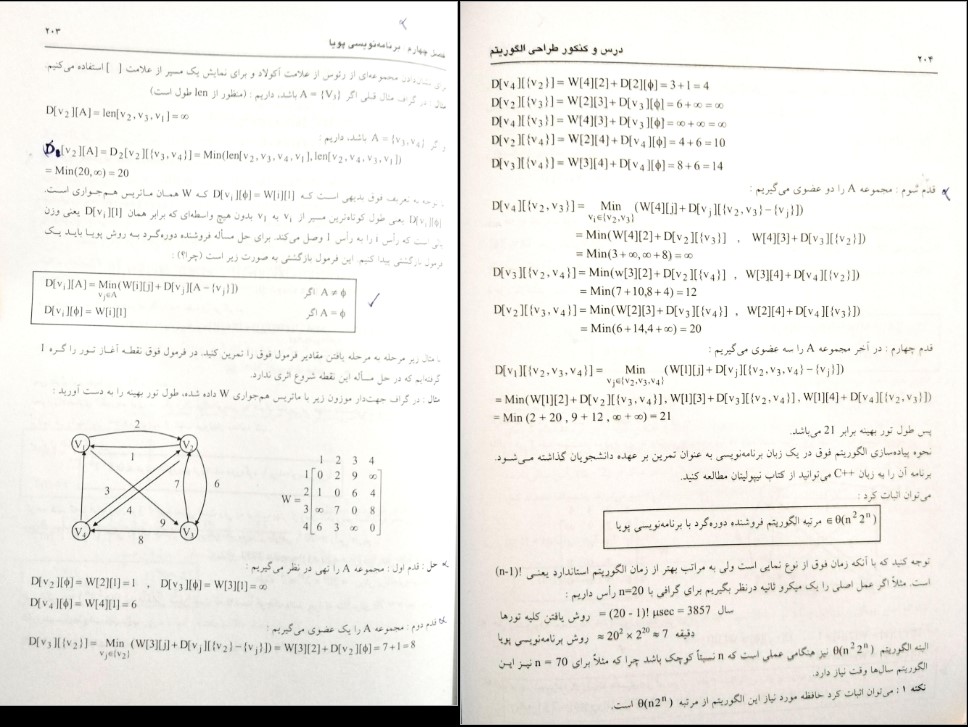 ۲۰۳
فصل چهارم : برنامه‌نویسی پویا
مجموعه‌ای از رئوس از علامت آکولاد و برای نمایش یک مسیر از علامت [ ] استفاده می‌کنیم.
مثال : در گراف مثال قبلی اگر A = {V₃} باشد، داریم : (منظور از len طول است)
D[v₂][A] = len[v₂, v₃, v₁] = ∞
و اگر A = {v₃, v₄} باشد، داریم :
D[v₂][A] = D₂[v₂][{v₃, v₄}] = Min(len[v₂, v₃, v₄, v₁], len[v₂, v₄, v₃, v₁])
= Min(20, ∞) = 20
با توجه به تعریف فوق بدیهی است که D[vᵢ][ϕ] = W[i][1] که W همان ماتریس هم‌جواری است.
D[vᵢ][ϕ] یعنی طول کوتاه‌ترین مسیر از vᵢ به v₁ بدون هیچ واسطه‌ای که برابر همان D[vᵢ][1] یعنی وزن
یالی است که رأس i را به رأس 1 وصل می‌کند. برای حل مسأله فروشنده دوره‌گرد به روش پویا باید یک
فرمول بازگشتی پیدا کنیم. این فرمول بازگشتی به صورت زیر است (چرا؟) :
D[vᵢ][A] = Min(W[i][j] + D[vⱼ][A – {vⱼ}]) اگر A ≠ ϕ
vⱼ∈A
D[vᵢ][ϕ] = W[i][1] اگر A = ϕ
با مثال زیر مرحله به مرحله یافتن مقادیر فرمول فوق را تمرین کنید. در فرمول فوق نقطه آغاز تور را گره 1
گرفته‌ایم که در حل مسأله این نقطه شروع اثری ندارد.
مثال : در گراف جهت‌دار موزون زیر با ماتریس هم‌جواری W داده شده، طول تور بهینه را به دست آورید :
2
V₁ V₂
1
3 7 6
4
9
V₄ V₃
8
1 2 3 4
1 0 2 9 ∞
W = 2 1 0 6 4
3 ∞ 7 0 8
4 6 3 ∞ 0
حل : قدم اول : مجموعه A را تهی در نظر می‌گیریم :
D[v₂][ϕ] = W[2][1] = 1 , D[v₃][ϕ] = W[3][1] = ∞
D[v₄][ϕ] = W[4][1] = 6
قدم دوم : مجموعه A را یک عضوی می‌گیریم :
D[v₃][{v₂}] = Min (W[3][j] + D[vⱼ][{v₂} – {vⱼ}]) = W[3][2] + D[v₂][ϕ] = 7 + 1 = 8
vⱼ∈{v₂}
درس و کنکور طراحی الگوریتم
۲۰۴
D[v₄][{v₂}] = W[4][2] + D[2][ϕ] = 3 + 1 = 4
D[v₂][{v₃}] = W[2][3] + D[v₃][ϕ] = 6 + ∞ = ∞
D[v₄][{v₃}] = W[4][3] + D[v₃][ϕ] = ∞ + ∞ = ∞
D[v₂][{v₄}] = W[2][4] + D[v₄][ϕ] = 4 + 6 = 10
D[v₃][{v₄}] = W[3][4] + D[v₄][ϕ] = 8 + 6 = 14
قدم سوم : مجموعه A را دو عضوی می‌گیریم :
D[v₄][{v₂, v₃}] = Min (W[4][j] + D[vⱼ][{v₂, v₃} – {vⱼ}])
vⱼ∈{v₂,v₃}
= Min(W[4][2] + D[v₂][{v₃}] , W[4][3] + D[v₃][{v₂}])
= Min(3 + ∞, ∞ + 8) = ∞
D[v₃][{v₂, v₄}] = Min(w[3][2] + D[v₂][{v₄}] , W[3][4] + D[v₄][{v₂}])
= Min(7 + 10, 8 + 4) = 12
D[v₂][{v₃, v₄}] = Min(W[2][3] + D[v₃][{v₄}] , W[2][4] + D[v₄][{v₃}])
= Min(6 + 14, 4 + ∞) = 20
قدم چهارم : در آخر مجموعه A را سه عضوی می‌گیریم :
D[v₁][{v₂, v₃, v₄}] = Min (W[1][j] + D[vⱼ][{v₂, v₃, v₄} – {vⱼ}])
vⱼ∈{v₂,v₃,v₄}
= Min(W[1][2] + D[v₂][{v₃, v₄}], W[1][3] + D[v₃][{v₂, v₄}], W[1][4] + D[v₄][{v₂, v₃}])
= Min (2 + 20 , 9 + 12 , ∞ + ∞) = 21
پس طول تور بهینه برابر 21 می‌باشد.
نحوه پیاده‌سازی الگوریتم فوق در یک زبان برنامه‌نویسی به عنوان تمرین بر عهده دانشجویان گذاشته می‌شود.
برنامه آن را به زبان C++ می‌توانید از کتاب نیپولیتان مطالعه کنید.
می‌توان اثبات کرد :
مرتبه الگوریتم فروشنده دوره‌گرد با برنامه‌نویسی پویا ∈ θ(n² 2ⁿ)
توجه کنید که با آنکه زمان فوق از نوع نمایی است ولی به مراتب بهتر از زمان الگوریتم استاندارد یعنی (n-1)!
است. مثلاً اگر عمل اصلی را یک میکرو ثانیه درنظر بگیریم برای گرافی با n=20 رأس داریم :
روش یافتن کلیه تورها = (20 - 1)! μsec = 3857 سال
روش برنامه‌نویسی پویا ≈ 20² × 2²⁰ ≈ 7 دقیقه
البته الگوریتم θ(n² 2ⁿ) نیز هنگامی عملی است که n نسبتاً کوچک باشد چرا که مثلاً برای n = 70 نیز این
الگوریتم سال‌ها وقت نیاز دارد.
نکته ۱ : می‌توان اثبات کرد حافظه مورد نیاز این الگوریتم از مرتبه θ(n2ⁿ) است.